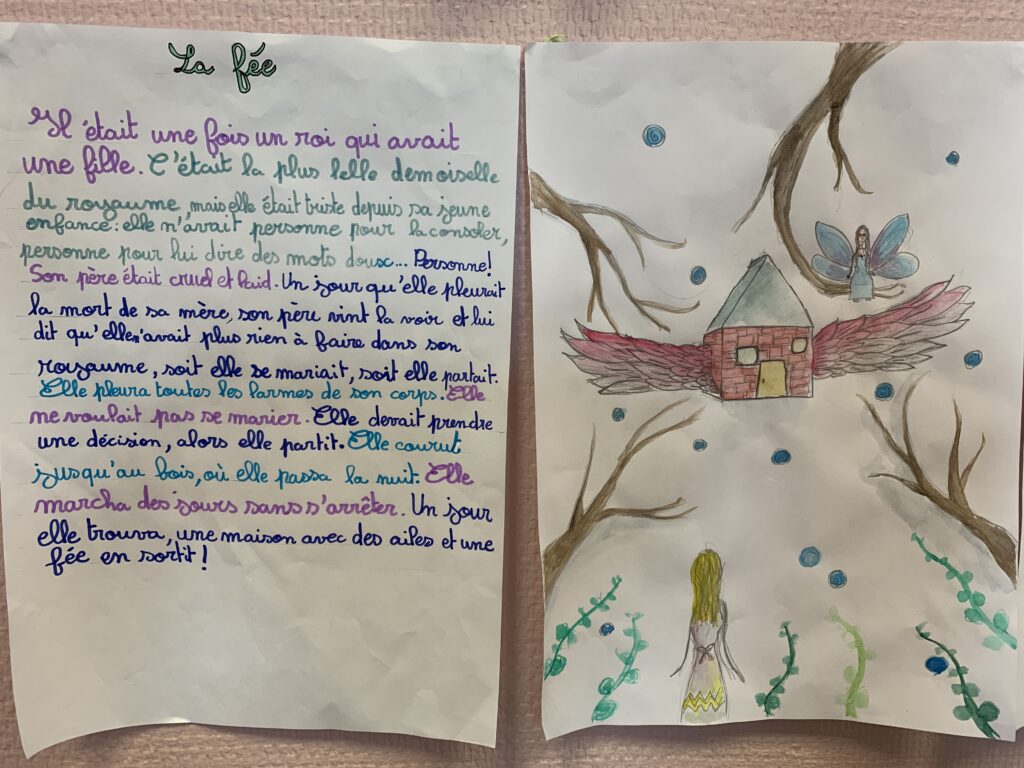 La fée
Il était une fois un roi qui avait
une fille. C'était la plus belle demoiselle
du royaume, mais elle était triste depuis sa jeune
enfance : elle n'avait personne pour la consoler,
personne pour lui dire des mots doux... Personne !
Son père était cruel et laid. Un jour qu'elle pleurait
la mort de sa mère, son père vint la voir et lui
dit qu'elle n'avait plus rien à faire dans son
royaume, soit elle se mariait, soit elle partait.
Elle pleura toutes les larmes de son corps. Elle
ne voulait pas se marier. Elle devait prendre
une décision, alors elle partit. Elle courut
jusqu'au bois, où elle passa la nuit. Elle
marcha des jours sans s'arrêter. Un jour
elle trouva, une maison avec des ailes et une
fée en sortit !